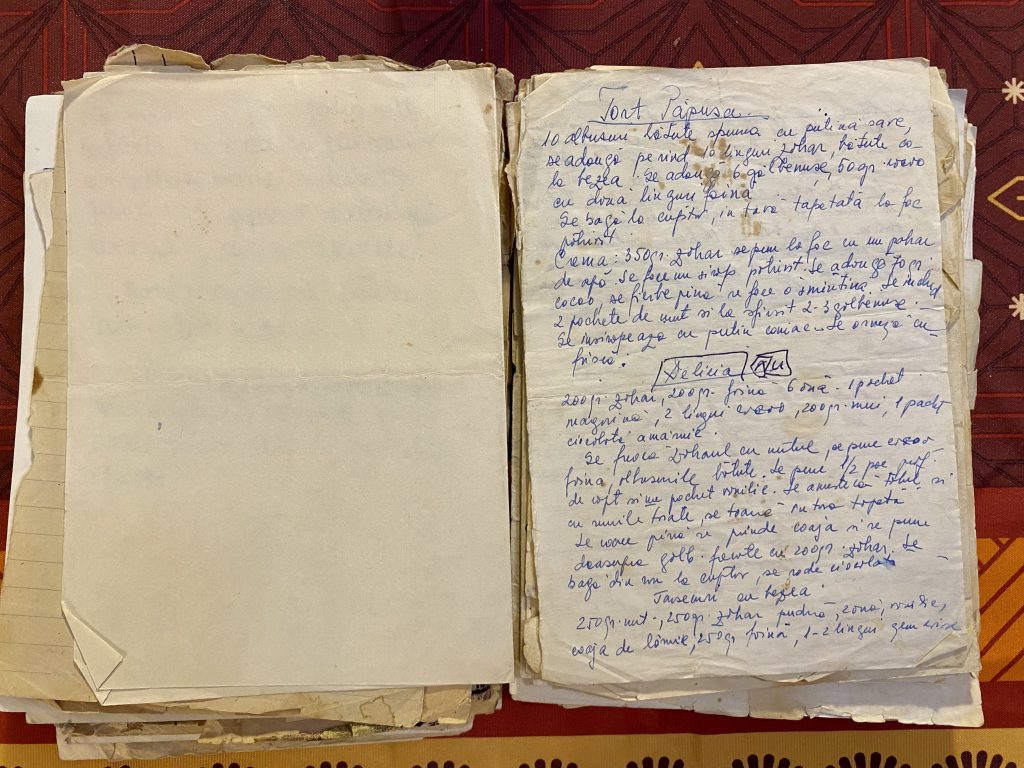 Tort Păpușa
10 albușuri bătute spumă cu puțină sare,
se adaugă pe rînd 10 linguri zahăr, bătute ca
la bezea. Se adaugă 6 gălbenușe, 50 gr. cacao
cu două linguri faină
Se bagă la cuptor, in tavă tapetată la foc
potrivit.
Crema: 350 gr. zahar se pun la foc cu un pahar
de apă. Se face un sirop potrivit. Se adauga 70 gr.
cacao, se fierbe pina se face o smîntînă. Se
2 pachete de unt si la sfirsit 2-3 gălbenușe.
Se insiropeaza cu putin coniac. Se ornează cu
frișcă.
Delicia Nu
200 gr zahar, 200 gr. faină 6 ouă. 1 pachet
margarină, 2 linguri cacao, 200 gr. nuci, 1 pachet
ciocolată amăruie.
Se freacă zaharul cu untul, se pune cacao
faina, albușurile bătute. Se pune 1/2 praf
de copt si un pachet vanilie. Se amestecă totul si
cu nucile tăiate, se toarnă in tava
Se coace pînă se prinde coaja si se pune
deasupra gălb. frecate cu 200 gr. zahar. Se
baga din nou la cuptor, se rade ciocolata
cu bezea
250 gr. unt, 250 gr. zahar pudră, 2 ouă, vanilie,
coaja de lămîie, 250 gr faină, 1-2 linguri gem